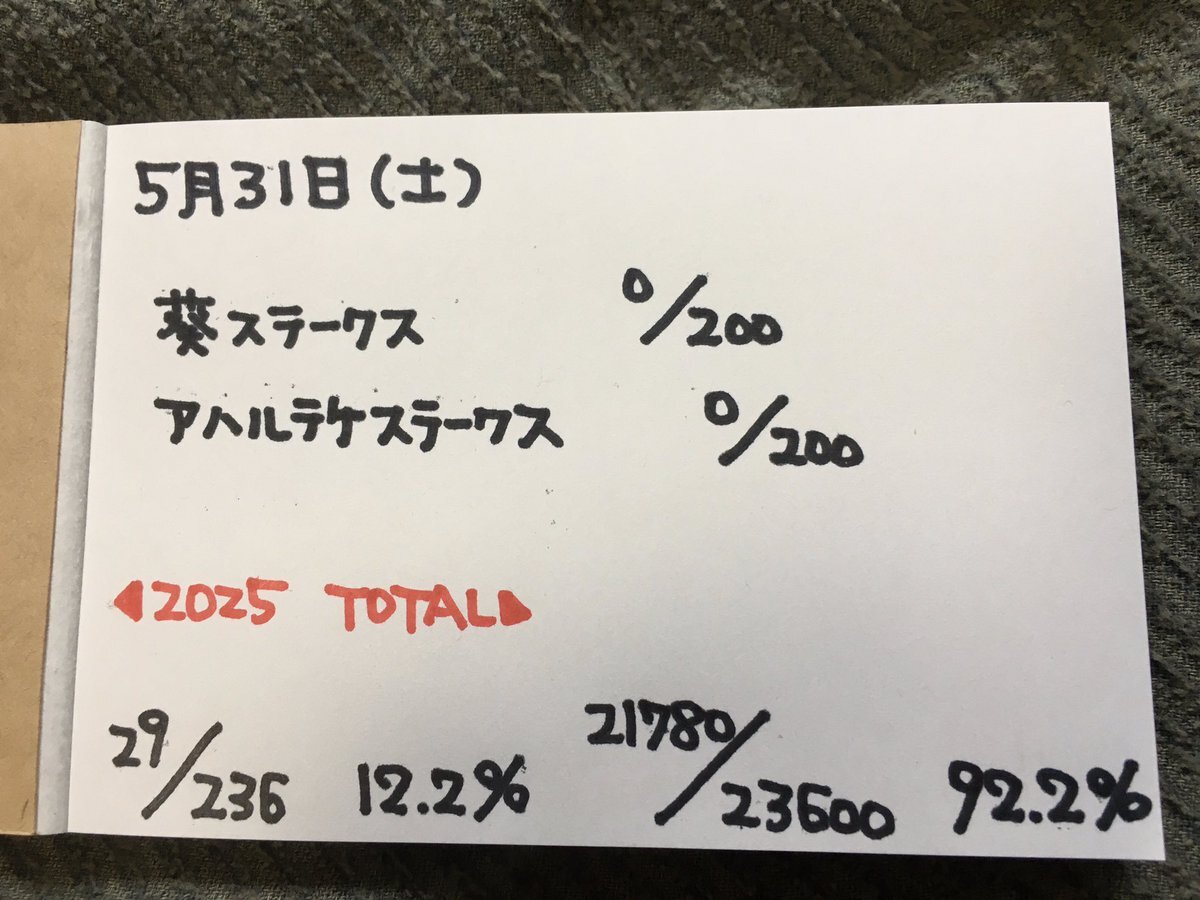 5月31日(土)
葵ステークス 0/200
アハルテケステークス 0/200
◀2025 TOTAL▶
29/236 12.2% 21780/23600 92.2%